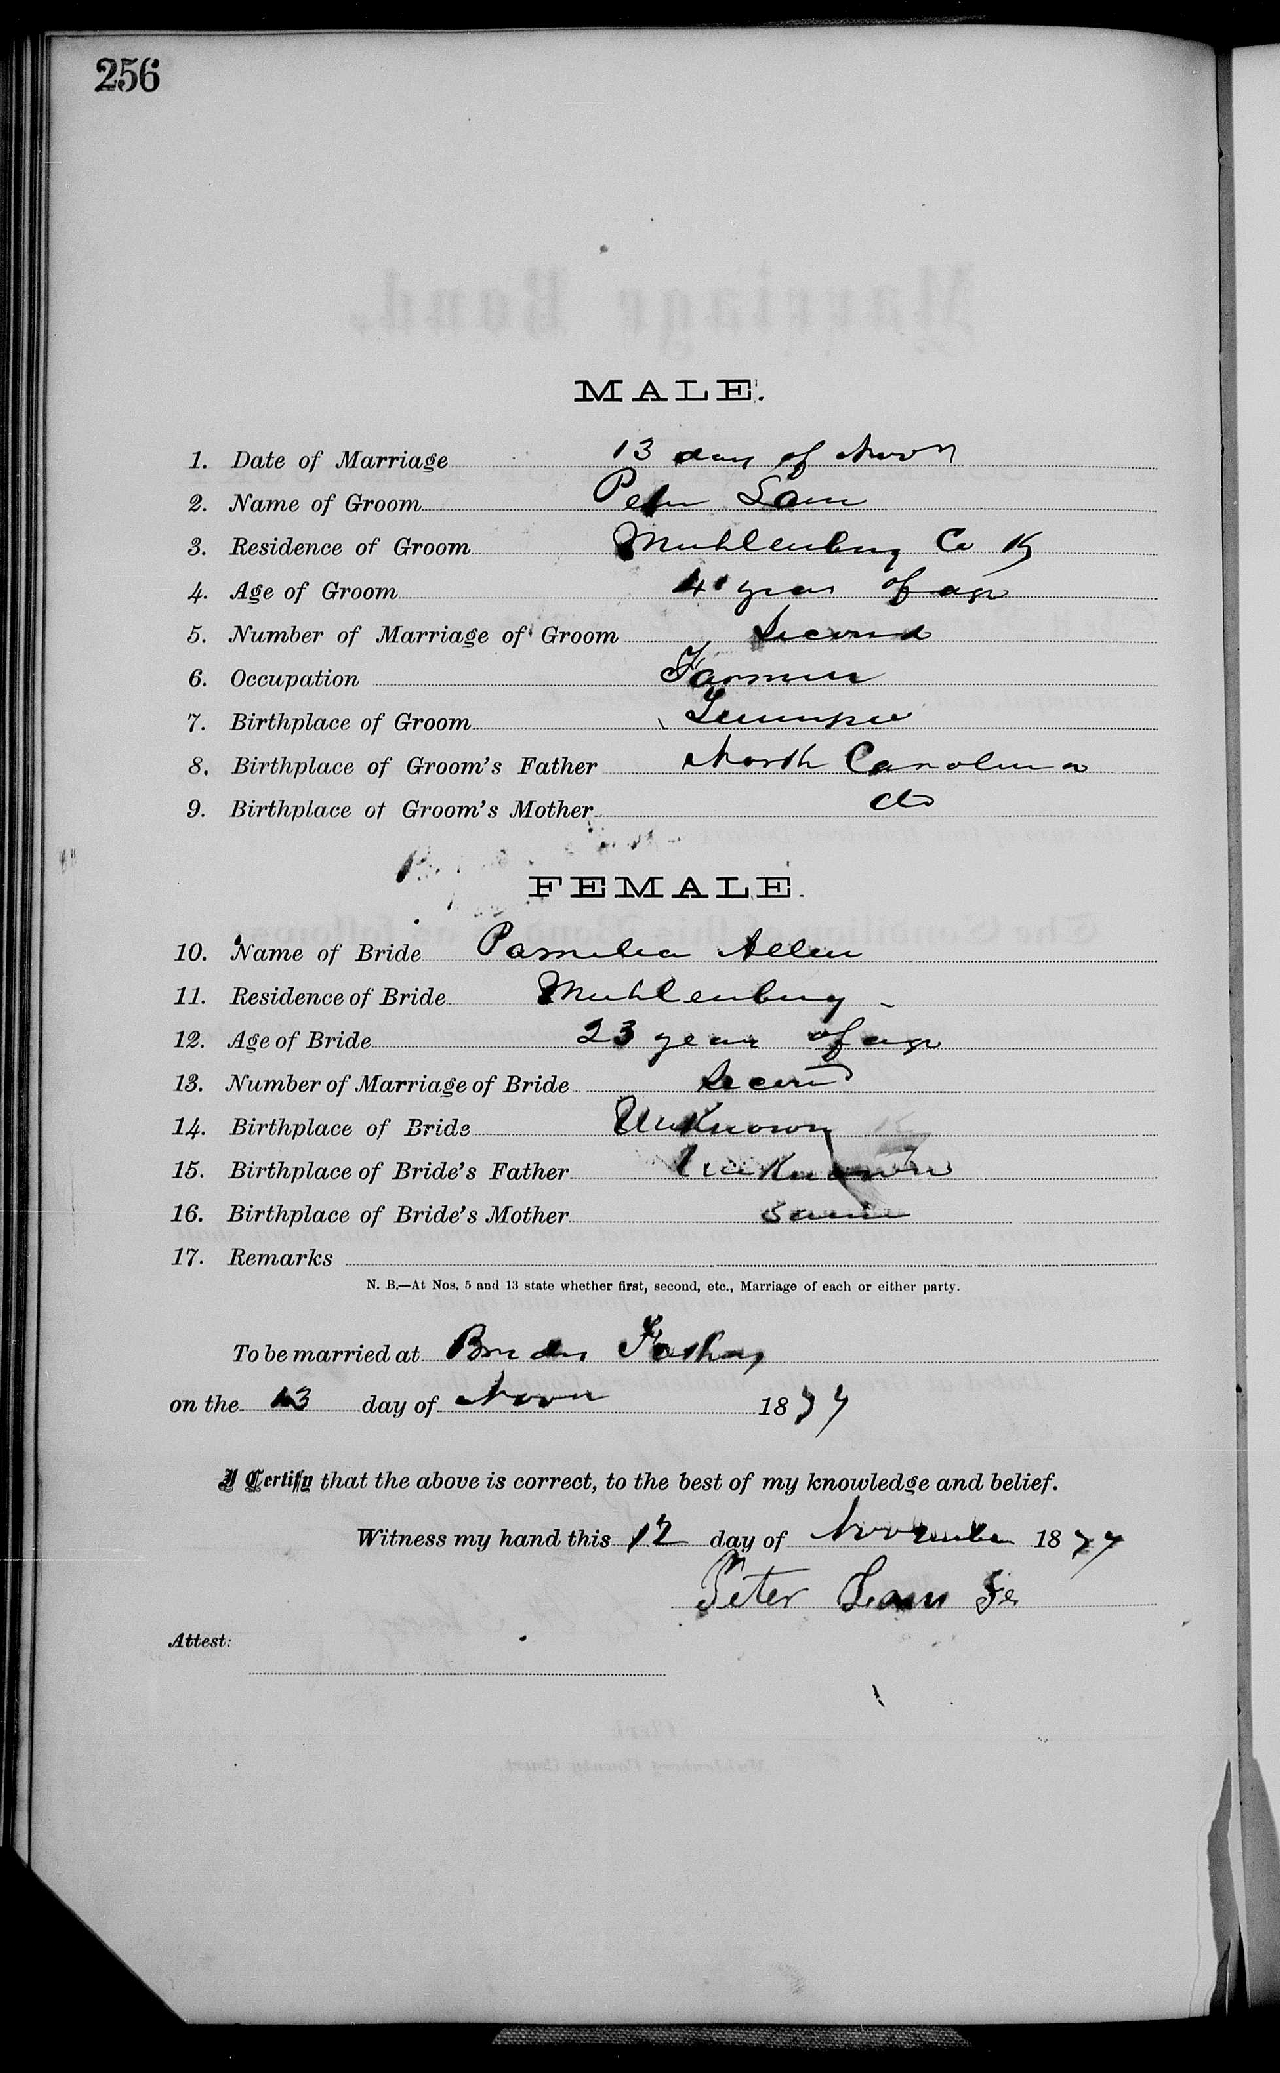 256
MALE.
1. Date of Marriage 13 day of Novr
2. Name of Groom Peter Lam
3. Residence of Groom Muhlenburg Co Ky
4. Age of Groom years of age
5. Number of Marriage of Groom Second
6. Occupation Farmer
7. Birthplace of Groom Tennessee
8. Birthplace of Groom's Father North Carolina
9. Birthplace of Groom's Mother do
FEMALE.
10. Name of Bride Pamelia Allen
11. Residence of Bride Muhlenburg -
12. Age of Bride 23 years of age
13. Number of Marriage of Bride Second
14. Birthplace of Bride Unknown
15. Birthplace of Bride's Father Unknown
16. Birthplace of Bride's Mother Same
17. Remarks
N. B.—At Nos. 5 and 13 state whether first, second, etc., Marriage of each or either party.
To be married at Brides Fathers
on the 13 day of Novr 1877
I Certify that the above is correct, to the best of my knowledge and belief.
Witness my hand this 12 day of November 1877
Peter Lam
Attest: